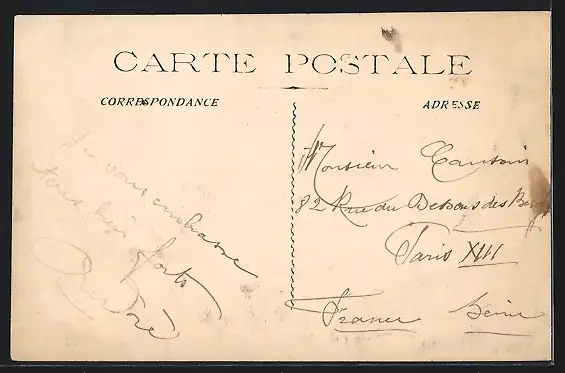 CARTE POSTALE
CORRESPONDANCE
ADRESSE
Je vous embrasse
tous bien forts
André
Monsieur
82 Rue du Dessous des Berges
Paris XIII
France Seine